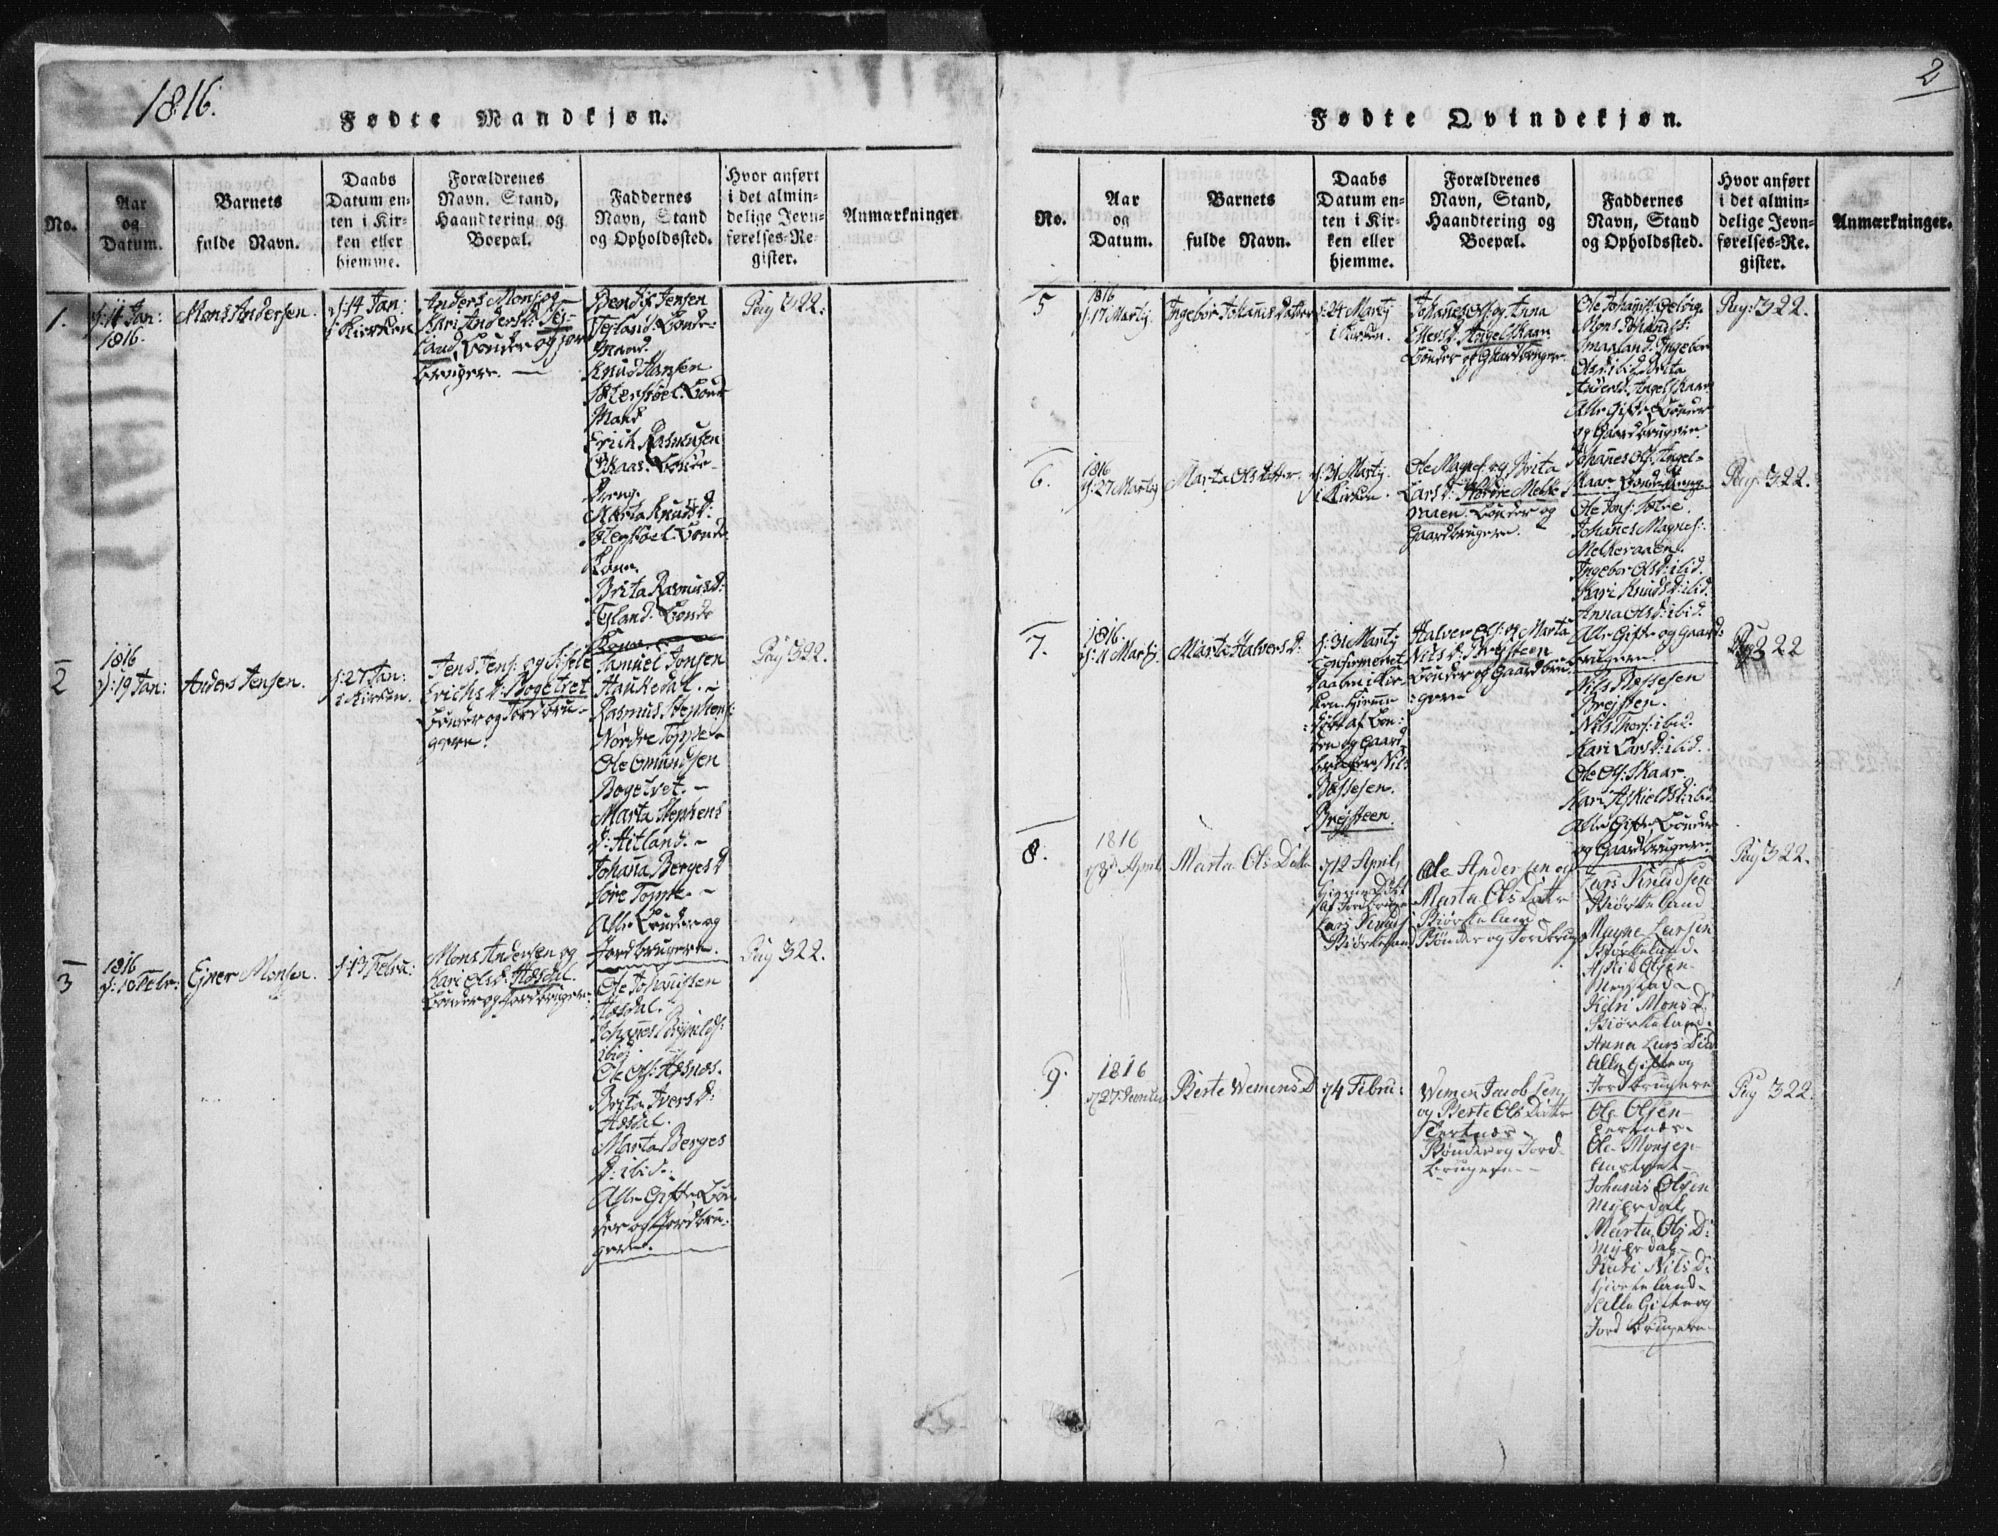 1816.
Fødte Mandkjøn.
No.
Aar
og
Datum.
Barnets
fulde Navn.
Daabs
Datum en-
ten i Kir-
ken eller
hjemme.
Forældrenes
Navn, Stand,
Haandtering og
Boepæl.
Faddernes
Navn, Stand
og Opholdssted.
Hvor anført
i det almin-
delige Jevn-
førelses-Re-
gister.
Anmærkninger
1.
d: 11 Jan:
1816.
Mons Andersen.
d: 14 Jan:
i Kirken
Anders Mons: og
Kari Andersd:
Bønder og jord
brugere.
Bendix Jensen
Tesland. Bonde-
Mand.
Knud Hansen
Bonde
Mand
Erich Rasmusen
Skaar. Bonde-
Dreng.
Marta Knudsd:
Bonde
Kone.
Brita Rasmusd:
Tesland. Bonde
Kone.
Pag 322.
2
1816
d: 19 Jan:
Anders Jensen.
d: 27 Jan:
i Kirken.
Jens Jens: og Sisele
Erichsd: Bogetvet
Bønder og Jordbru-
gere.
Samuel Jonsen
Haukedal. -
Rasmus Stephens:
Nordre Toppe -
Ole Omundsen
Bogetvet. -
Marta Stephens
d: Hitland. -
Johana Berges d
Søre Toppe. -
Alle Bønder og
Jordbrugere.
Pag 322.
3
1816
d: 10 Febr:
Ejner Monsen.
d: 13 Febru:
Mons Andersen og
Kari Olsd: Hæsdal.
Bønder og Jordbrugere.
Ole Johansen
Hæsdal.
Johanes
ibid
Ole Ols:
Brita Iversd:
Hæsdal.
Marta Berges
d: ibid:
Alle Gifte Bøn-
der og Jordbru-
gere.
Pag 322.
2
Fødte Qvindekjøn.
No.
Aar
og
Datum.
Barnets
fulde Navn.
Daabs
Datum en-
ten i Kir-
ken eller
hjemme.
Forældrenes
Navn, Stand,
Haandtering og
Boepæl.
Faddernes
Navn, Stand
og Opholdssted.
Hvor anført
i det almin-
delige Jevn-
førelses-Re-
gister.
Anmærkninger.
5
1816
d: 17 Martij.
Ingebor Johanis Datter
d: 24 Martij
i Kirken.
Johanes Ols: og Anna
Ellersd: Angelskaar.
Bønder og Gaardbrugere.
Ole Johanis:
Mons Johanes:
Ingebor
Olsd: ibid.
Angelskaar
Alle Gifte Bønder
og Gaardbrugere.
Johanes Ols: Angel-
skaar
Pag: 322.
6.
1816
d: 27 Martij
Marta Olsdatter
d: 31 Martij.
i Kirken.
Ole Magnes: og Brita
Larsd: Nordre Melke
raaen. Bønder og
Gaardbrugere.
Ole Jons:
Johanes Magnes:
Melkeraaen.
Ingebor Olsd: ibid.
Kari Knudsd: ibid.
Anna Olsd: ibid.
Alle Gifte og Gaard:
brugere.
Pag: 322.
7.
1816.
d: 11 Martij.
Marta Halversd:
d: 31 Martij
Confirmeret
Daaben i Kir-
ken. Hjemme
døbt af Bon:
den og Gaard
brugere Nils
Bøssesen.
Brejsteen.
Halver Ols: og Marta
Nilsd: Brejsteen
Bønder og Gaardbru-
gere
Nils Bøssesen
Brejsten.
Nils Thors: ibid.
Kari Larsd: ibid.
Ole Ols: Skaar.
Kari Askieldsd: ibid
Alle Gifte Bønder
og Gaardbrugere.
Pag 322
8.
1816
April
Marta Ols Datte
12 April
Hjemme Døbt
af Jordbruger
Lars Knuds
Biørkeland
Ole Andersen og
Marta Ols Datte
Biørkeland -
Bønder og Jordbruge
Lars Knudsen
Biørkeland
Magne Larsen
Biørkeland -
Olsen
Kari Mons D:
Biørkeland.
Anna Lars D
Alle Gifte og
Jordbrugere
Pag 322.
9.
1816
27 Januari
Berte Wemens D
4 Febru:
Wemen Jacobsen
og Berte Ols Datte
Tertnæs -
Bønder og Jord
brugere -
Ole Olsen
Tertnæs -
Ole Monsen
Johanis Olsen
Myrdal
Marta Ols D:
Myrdal -
Kari Nils D:
Biørkeland -
Alle Gifte og
Jord brugere -
Pag 322.